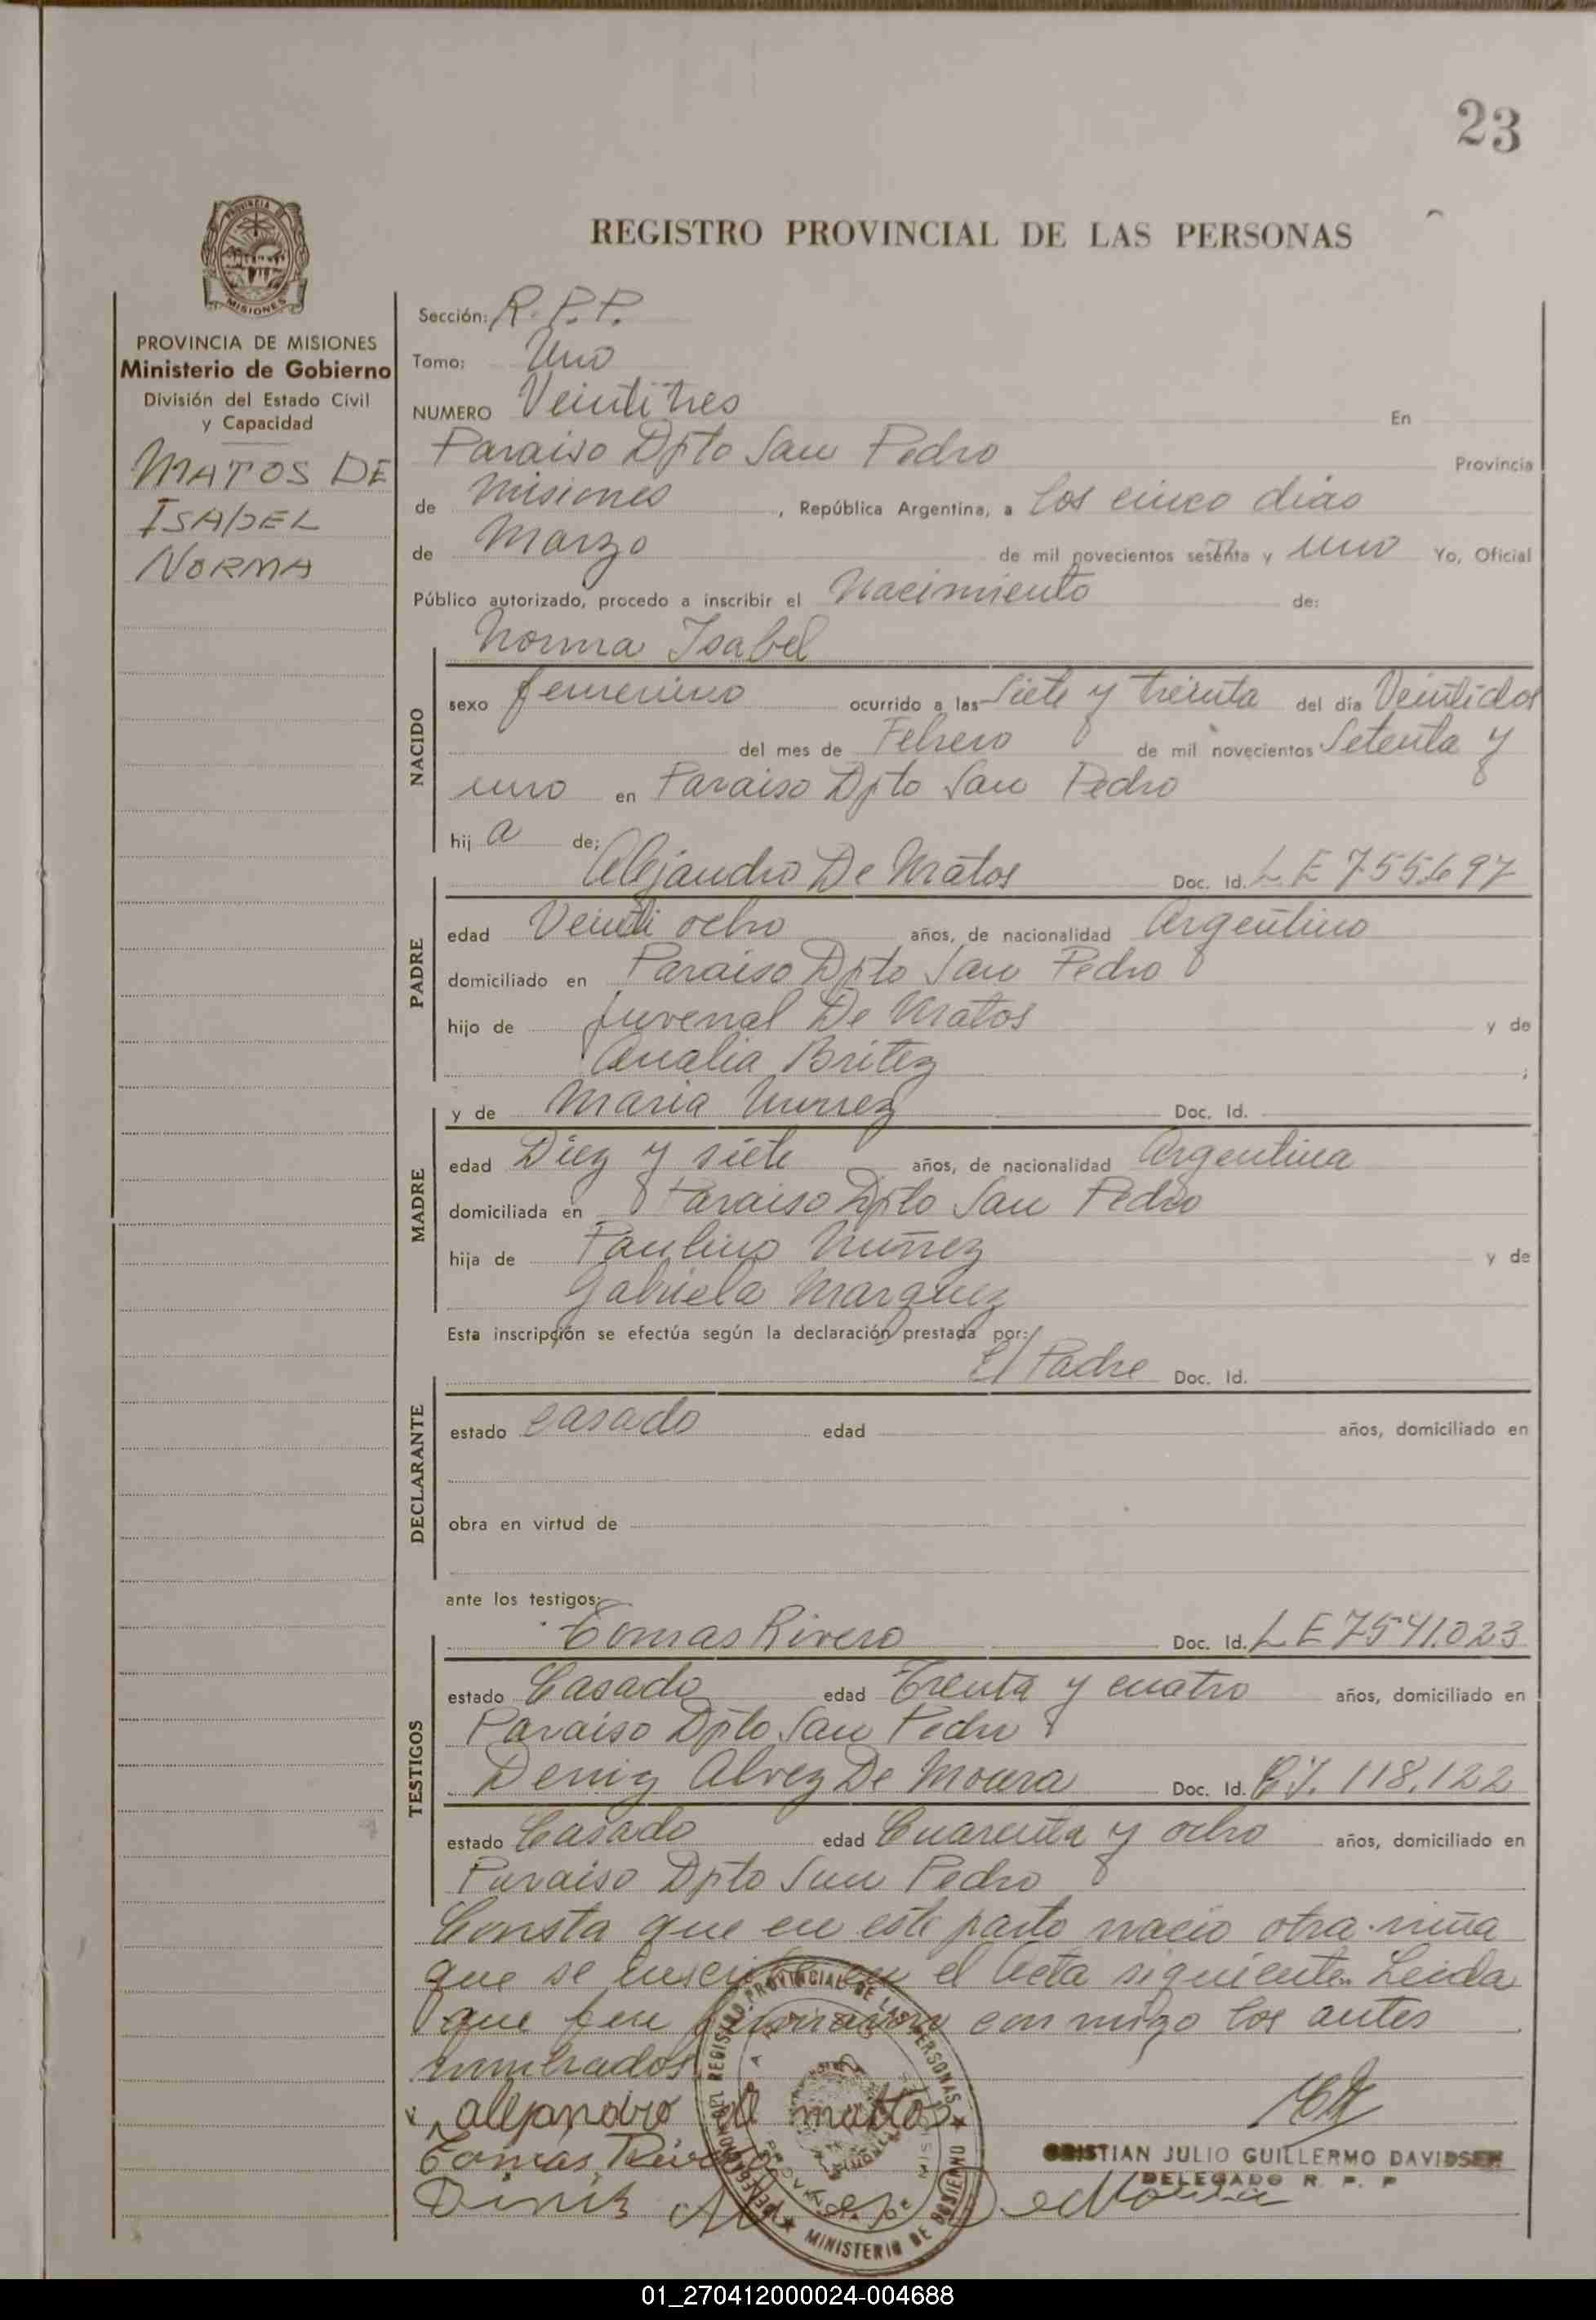 23
REGISTRO PROVINCIAL DE LAS PERSONAS
PROVINCIA DE MISIONES
Ministerio de Gobierno
División del Estado Civil
y Capacidad
MATOS DE
ISABEL
NORMA
Sección: R. P. P.
Tomo: Uno
NUMERO Veintitres En
Paraiso Dpto San Pedro Provincia
de Misiones, República Argentina, a los cinco dias
de Marzo de mil novecientos sesenta y uno Yo, Oficial
Público autorizado, procedo a inscribir el Nacimiento de:
Norma Isabel
NACIDO
sexo femenino ocurrido a las Siete y treinta del dia Veintidos
del mes de Febrero de mil novecientos Setenta y
uno en Paraiso Dpto San Pedro
hij a de;
Alejandro De Matos Doc. Id. L E 755.697
PADRE
edad Veinti ocho años, de nacionalidad Argentino
domiciliado en Paraiso Dpto San Pedro
hijo de Juvenal De Matos y de
Analia Britez ;
y de Maria Nunnez Doc. Id.
MADRE
edad Diez y siete años, de nacionalidad Argentina
domiciliada en Paraiso Dpto San Pedro
hija de Paulino Nuñez y de
Gabriela Marquez
Esta inscripción se efectúa según la declaración prestada por:
El Padre Doc. Id.
DECLARANTE
estado casado edad años, domiciliado en
obra en virtud de
ante los testigos:
Tomas Rivero Doc. Id. L E 7541.023
TESTIGOS
estado Casado edad Trenta y cuatro años, domiciliado en
Paraiso Dpto San Pedro
Deniz Alvez De Moura Doc. Id. C.I. 118.122
estado Casado edad Cuarenta y ocho años, domiciliado en
Paraiso Dpto San Pedro
Consta que en este parto nacio otra niña
que se inscribe en el Acta siguiente. Leida
que fue firmaron con migo los antes
nombrados
alejandro de mattos
Tomas Rivero
Diniz Alves De Moura
CRISTIAN JULIO GUILLERMO DAVIDSEN
DELEGADO R. P. P
REGISTRO PROVINCIAL DE LAS PERSONAS
MINISTERIO DE GOBIERNO
01_270412000024-004688